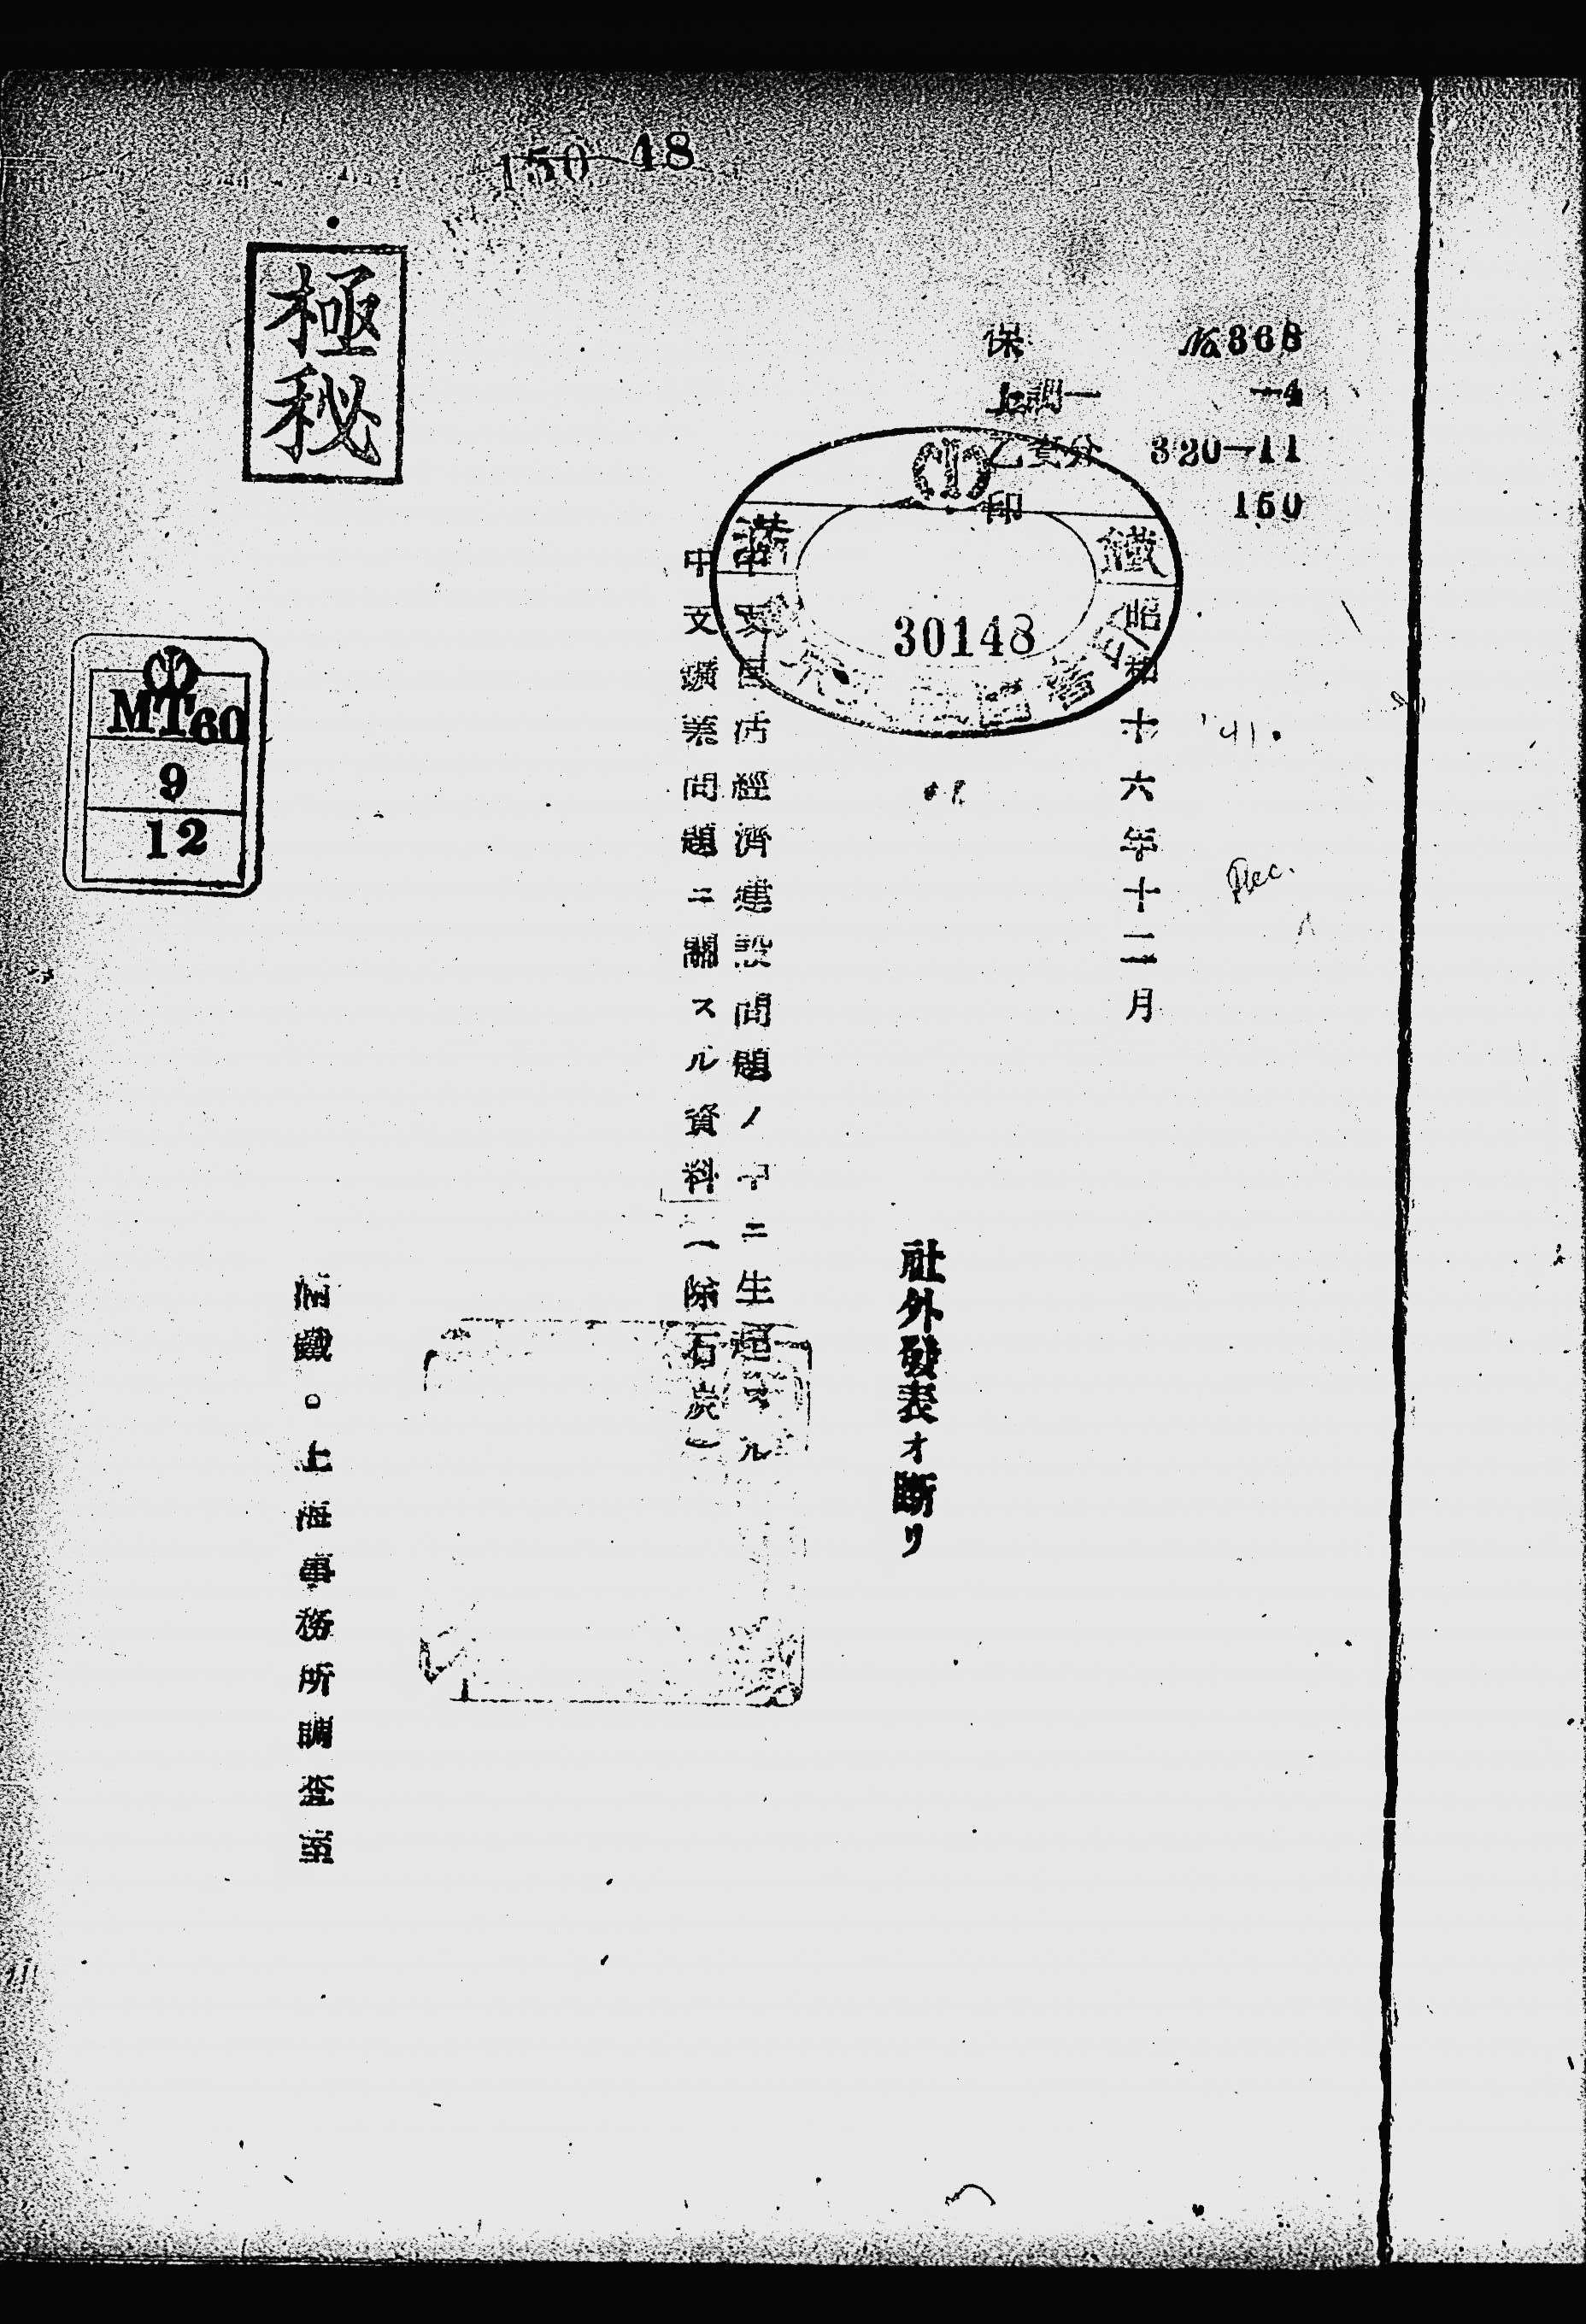 150 48
極秘
保 №368
上調一 —4
乙資分 320—11
印 150
満鐵
30148
昭和十六年十二月
'41.
Dec.
社外發表オ断リ
中支生活經濟建設問題ノ中ニ生起スル
中支鑛業問題ニ關スル資料(除石炭)
滿鐵。上海事務所調査室
MT60
9
12